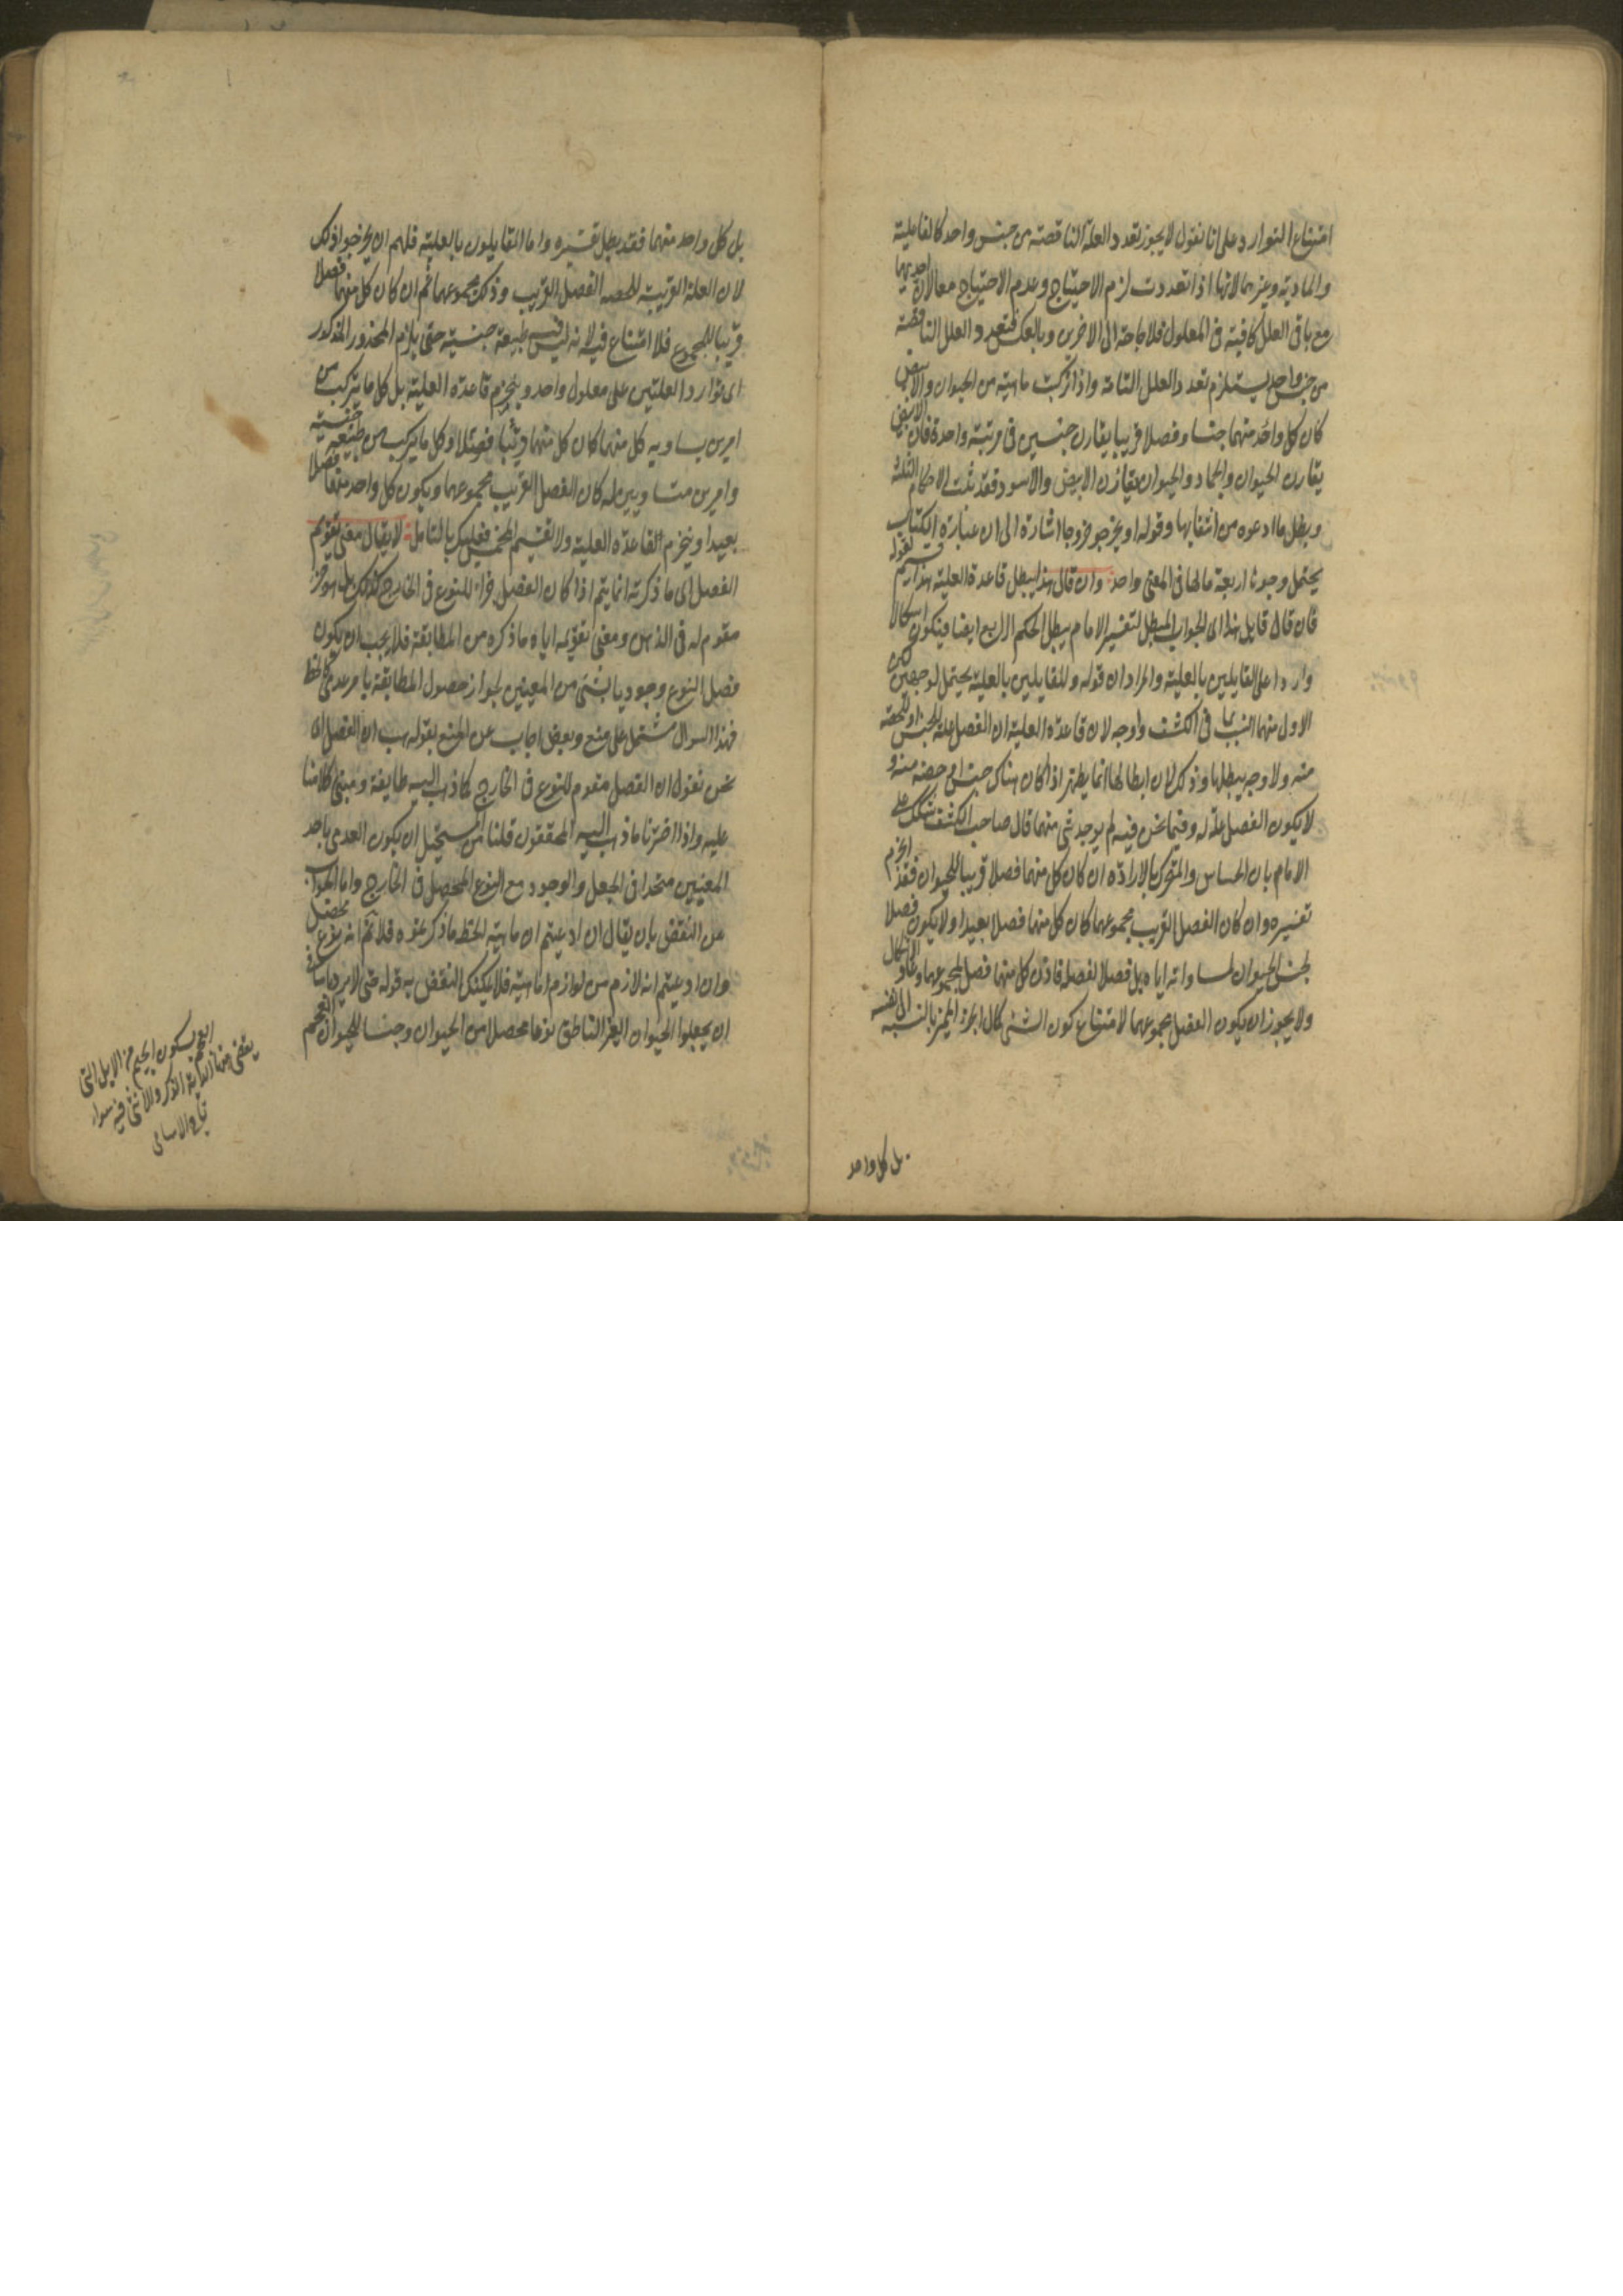 امتناع التوارد على انا نقول لا يجوز تعدد العلة الناقصة من جنس واحد كالفاعلية
والمادية وغيرهما لانها اذا تعددت لزم الاحتياج وعدم الاحتياج معا لان احديهما
مع باقى العلل كافية فى المعلول فلا حاجة الى الاخرى وبالعكس فتعدد العلل الناقصة
من جنس واحد يستلزم تعدد العلل التامة واذا تركبت ماهية من الحيوان والابيض
كان كل واحد منهما جنسا وفصلا قريبا يقارن جنسين فى مرتبة واحدة فان الابيض
يقارن الحيوان والجماد والحيوان يقارن الابيض والاسود فقد ثبت الاحكام الثلثة
وبطل ما ادعوه من انتفائها وقوله او يخرجو خروجا اشارة الى ان عبارة الكتاب
يحتمل وجوها اربعة مالها فى المعنى واحد وان قال هذا يبطل قاعدة العلية هذا
فان قال قايل هذا اى الجواب المبطل لتفسير الامام يبطل الحكم الرابع ايضا فيكون اشكالا
واردا على القايلين بالعلية والمراد ان قوله وللقايلين بالعلية يحتمل لوجهين لكن
الاول منهما انسب بما فى الكشف واوجه لان قاعدة العلية ان الفصل علة للجنس او للحصة
منه ولا وجه يبطلها وذلك لان ابطالها انما يظهر اذا كان هناك جنس او حصة منه و
لا يكون الفصل علة له وفيما نحن فيه لم يوجد شئ منهما قال صاحب الكشف شكك على
الامام بان الحساس والمتحرك بالارادة ان كان كل منهما فصلا قريبا للحيوان فقد انخرم
تفسيره وان كان الفصل القريب مجموعهما كان كل منهما فصلا بعيدا ولا يكون فصلا
لجنس الحيوان لمساواته اياه بل فصلا لفصله فاذن كل منهما فصل لمجموعهما وعاد الاشكال
ولا يجوز ان يكون الفصل مجموعهما لامتناع كون الشئ كمال الجزء المميز بالنسبة الى نفسه
بل كل واحد
بل كل واحد منهما فقد بطل تفسيره واما القايلون بالعلية فلهم ان يخرجوا ذلك
لان العلة القريبة للحصة الفصل القريب وذلك مجموعهما ثم ان كان كل منهما فصلا
قريبا للمجموع فلا امتناع فيه لانه ليس فيه طبيعة جنسية حتى يلزم المحذور المذكور
اى توارد العلتين على معلول واحد وينخرم قاعدة العلية بل كل ما يتركب من
امرين يساويه كل منهما كان كل منهما قريبا فصلا وكل ما يتركب من طبيعة جنسية
وامرين متساويين له كان الفصل القريب مجموعهما ويكون كل واحد منهما فصلا
بعيدا وينخرم القاعدة العلية ولا تقسيم المخمس فعليك بالتامل لا يقال معنى تقويم
الفصل اى ما ذكرته انما يتم اذا كان الفصل جزاء للنوع فى الخارج كذلك بل هو جزء
مقوم له فى الذهن ومعنى تقويمه اياه ما ذكره من المطابقة فلا يجب ان يكون
فصل النوع وجوديا بشئ من المعنيين لجواز حصول المطابقة بامر عدمى كالخط
فهذا السوال مشتمل على منع ونقض اجاب عن المنع بقوله هب ان الفصل اى
نحن نقول ان الفصل مقوم للنوع فى الخارج كما ذهب اليه طايفة ومبنى كلامنا
عليه واذا اخترنا ما ذهب اليه المحققون قلنا يستحيل ان يكون العدمى باحد
المعنيين متحدا فى الجعل والوجود مع النوع المحصل فى الخارج واما الجواب
عن النقض بان يقال ان ادعيتم ان ماهية الخط ما ذكر عنده فلا نم انه نوع محصل
وان ادعيتم انه لازم من لوازم الماهية فلا يمكنك النقض به قوله حتى لا
ان يجعلوا الحيوان الغير الناطق نوعا محصلا من الحيوان وجنسا للحيوان العجم
بسكون الجيم من الابل التى
الذكر والانثى فيه سواء
تاج الاسامى